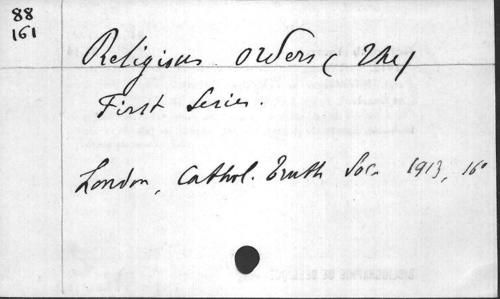 88
161
Religious orders (The)
First Series.
London, Cathol. Truth Soc. 1913, 16°